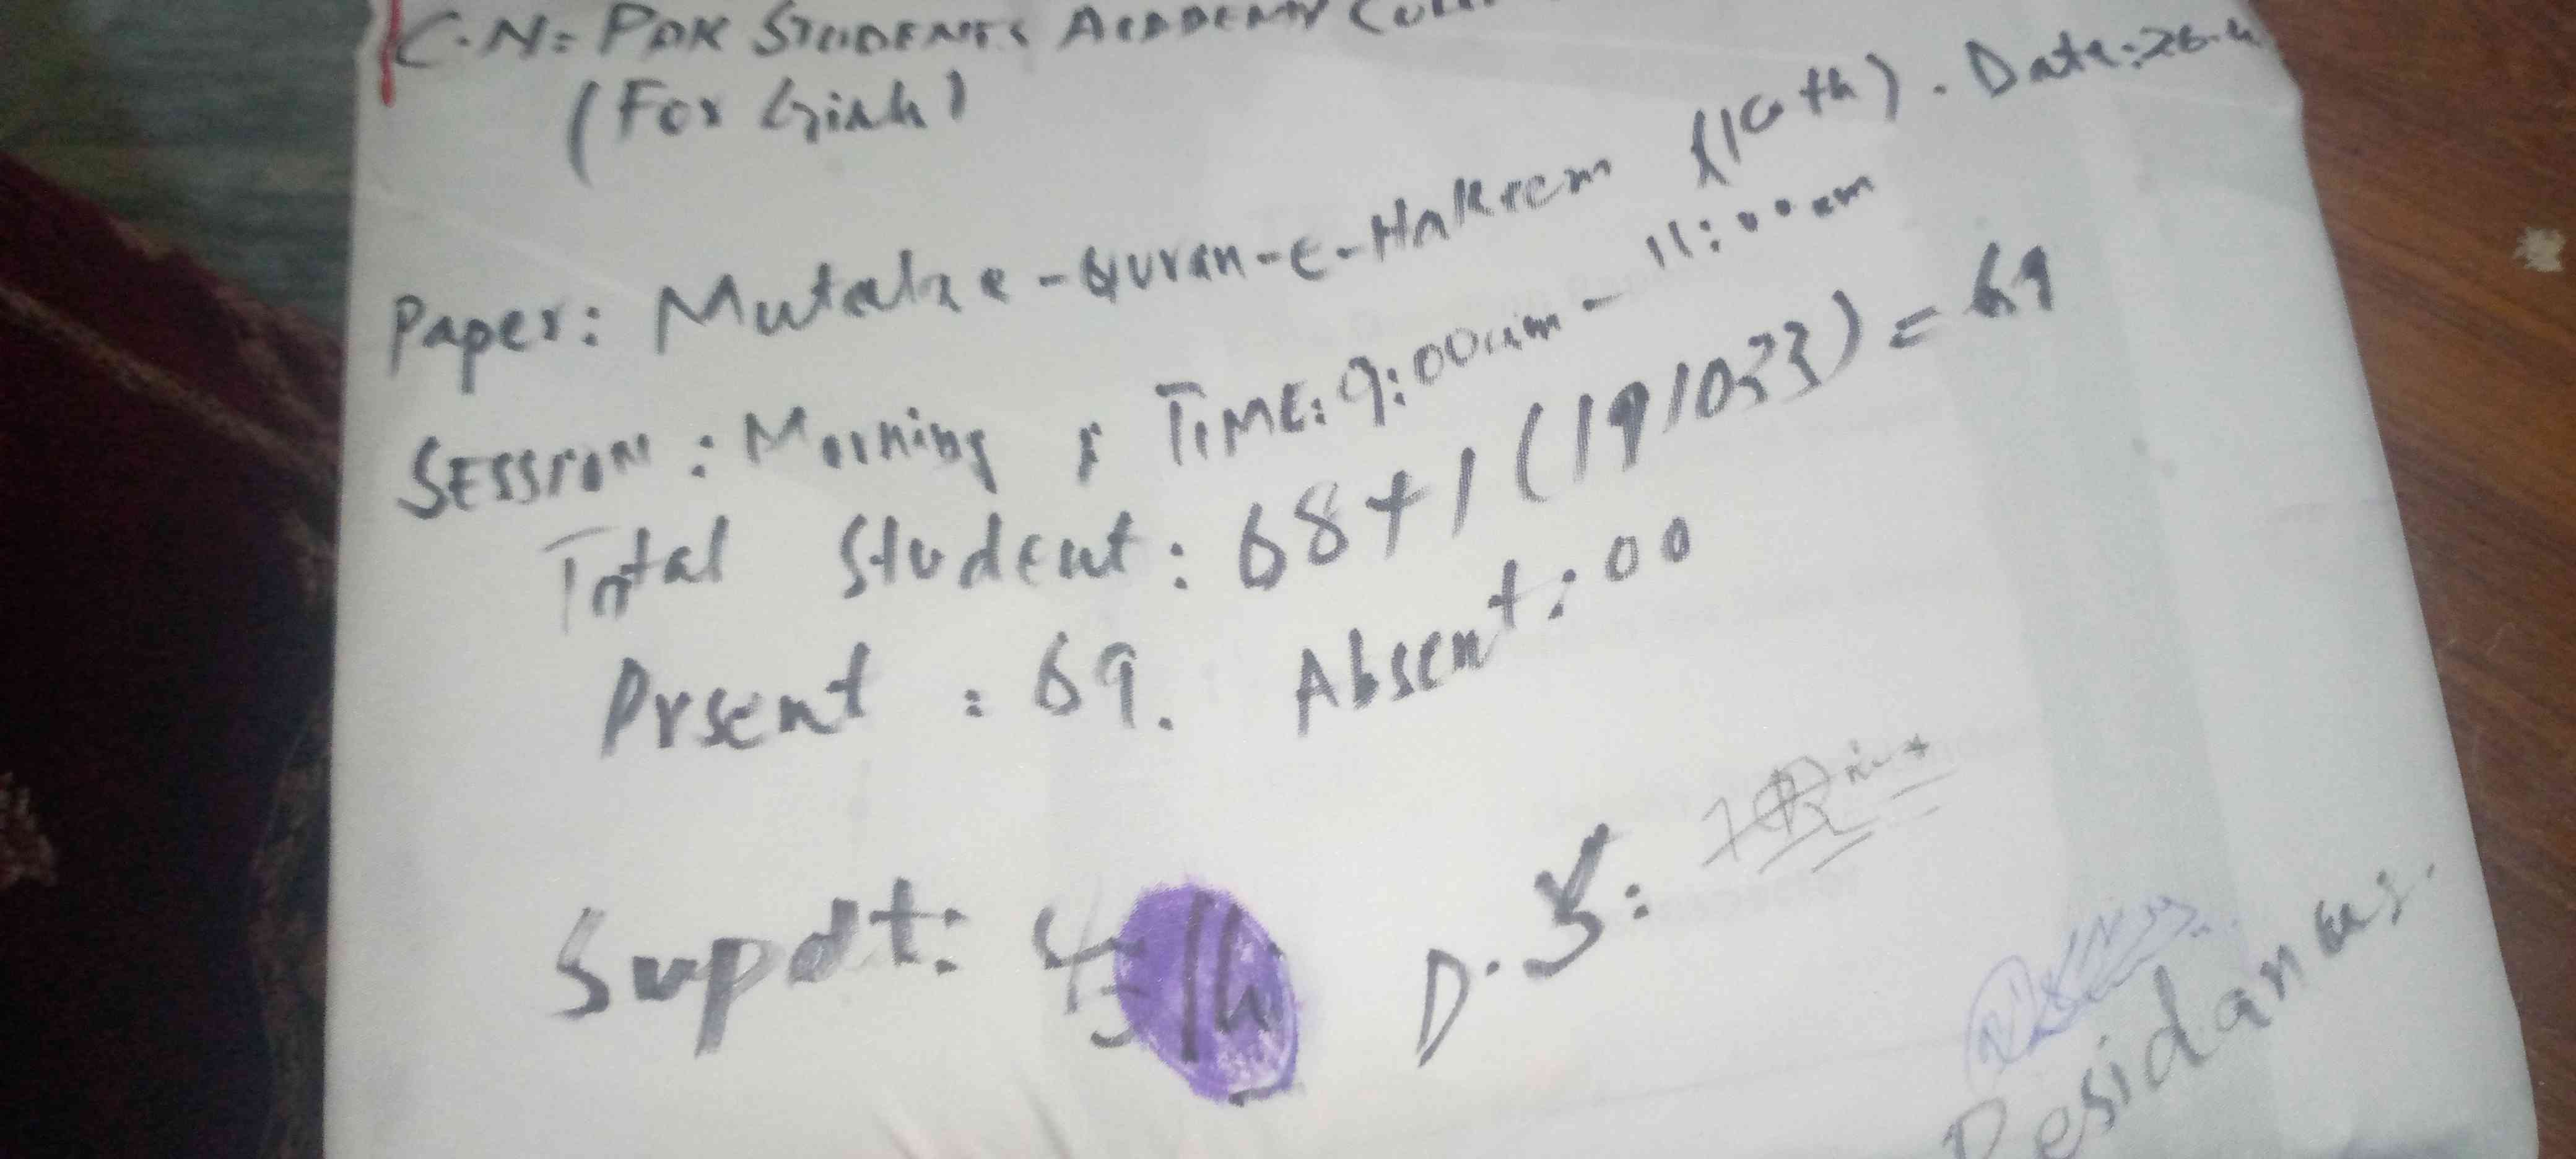 C.N= PAK STUDENTS ACADEMY
(For Girls)
Paper: Mutalae-Quran-E-Hakeem (10th). Date:26.4
SESSION: Morning ; TIME: 9:00am - 11:00am
Total Student: 68+1 (191033) = 69
Prsent : 69. Absent: 00
Supdt: D.S: